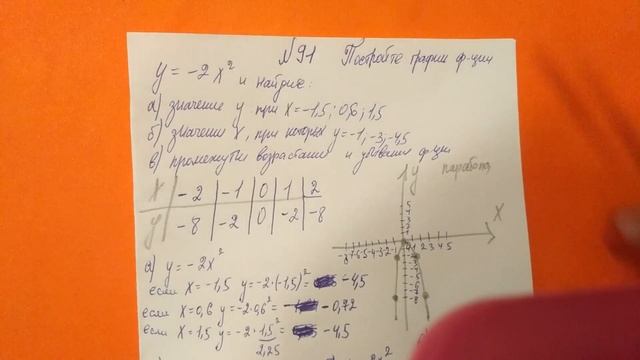 N 91 Постройте график ф-ции
y = -2x² и найдите:
а) значение y при x = -1,5; 0,6; 1,5
б) значения x, при которых y = -1; -3; -4,5
в) промежутки возрастания и убывания ф-ции
x | -2 | -1 | 0 | 1 | 2
y | -8 | -2 | 0 | -2 | -8
y
парабола
X
а) y = -2x²
если x = -1,5 y = -2·(-1,5)² = -4,5
если x = 0,6 y = -2·0,6² = -0,72
если x = 1,5 y = -2·1,5² = -4,5
2,25